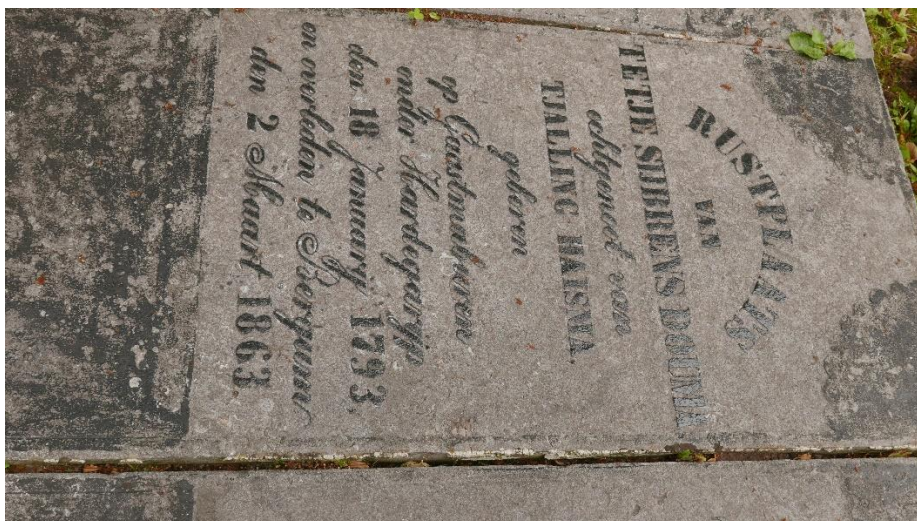 RUSTPLAATS
VAN
TETJE SIBBRENS DOUMA
echtgenoot van
TJALLING HAISMA,
geboren
op Gaastmabuven
onder Hardegarijp
den 18 January 1793,
en overleden te Bergum
den 2 Maart 1863.